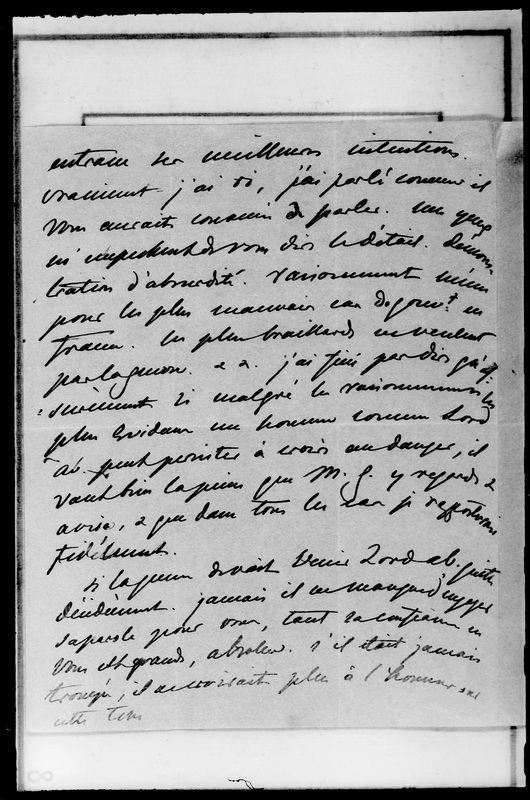 entrane ses meilleures intentions.
vraiment j'ai dis, j'ai parlé comme il
vous aurait convenu de parler. mes yeux
m'empêchent de vous dire le détail. démons-
tration d'absurdité. raisonnement même
pour les plus mauvais cas de gouvt. en
france. les plus braillards ne veulent
pas la guerre. &. &. j'ai fini par dire qu'as-
surément si malgré les raisonnements les
plus évidens un homme comme Lord
Ab. peut persister à croire au danger, il
vaut bien la peine que M. G. y regarde &
avise, & que dans tous les cas je rapporterais
fidèlement.
Si la guerre devait venir Lord Ab. quitte
décidément. jamais il ne manquera d'engager
sa parole pour vous, tant sa confiance en
vous est grande, absolue. s'il était jamais
trompé, il ne croirait plus à l'honneur sur
cette terre